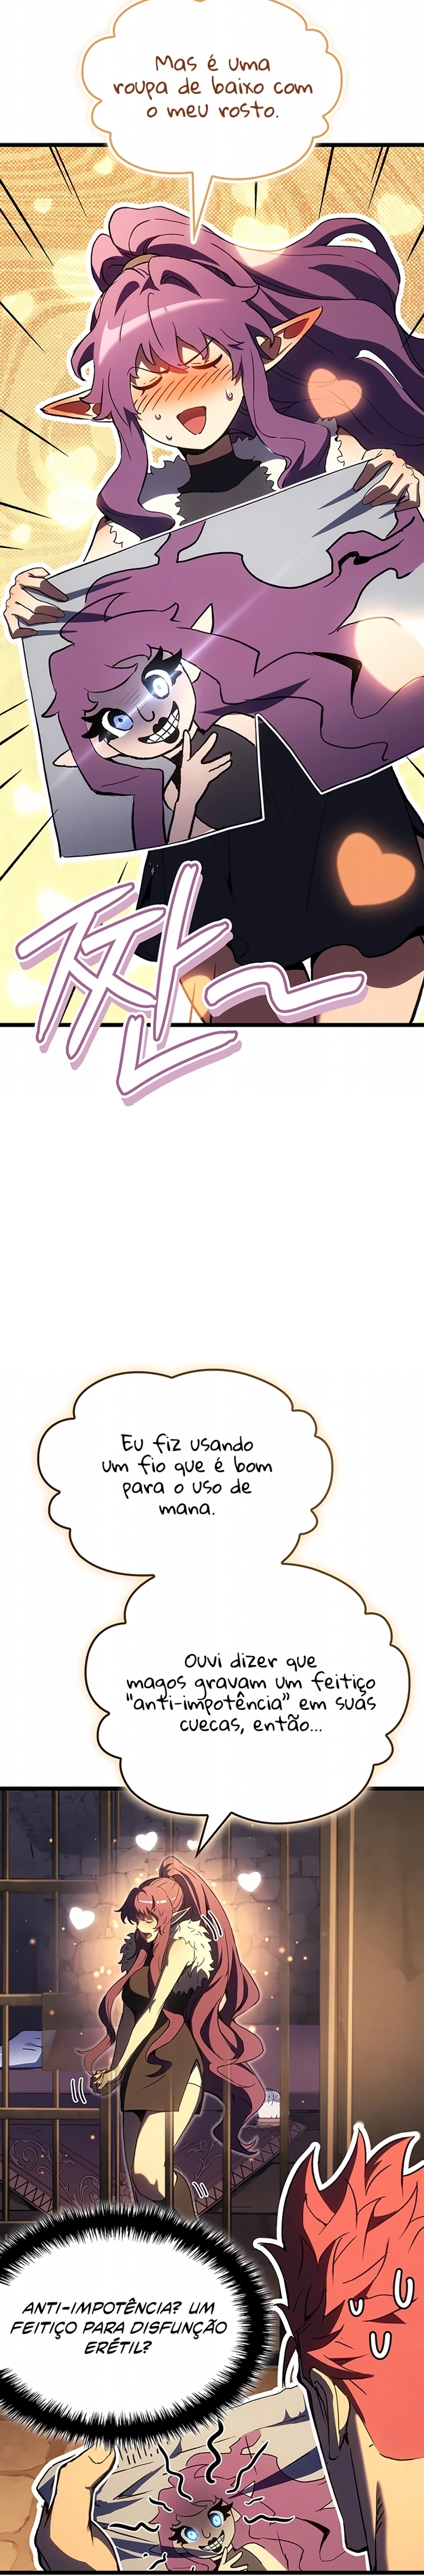 Mas é uma
roupa de baixo com
o meu rosto.
짠~
Eu fiz usando
um fio que é bom
para o uso de
mana.
Ouvi dizer que
magos gravam um feitiço
"anti-impotência" em suas
cuecas, então...
ANTI-IMPOTÊNCIA? UM
FEITIÇO PARA DISFUNÇÃO
ERÉTIL?